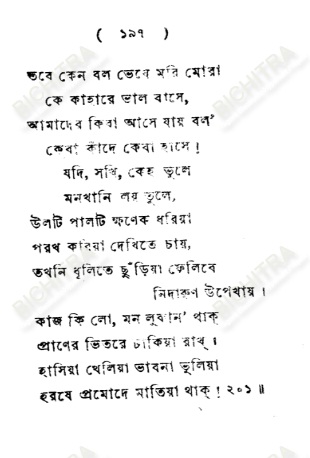 ( ১৯৭ )
তবে কেন বল ভেবে মরি মোরা
কে কাহারে ভাল বাসে,
আমাদের কিবা আসে যায় বল'
কেবা কাঁদে কেবা হাসে!
যদি, সখি, কেহ ভুলে
মনখানি লয় তুলে,
উলটি পালটি ক্ষণেক ধরিয়া
পরখ করিয়া দেখিতে চায়,
তখনি ধূলিতে ছুঁড়িয়া ফেলিবে
নিদারুণ উপেখায়।
কাজ কি লো, মন লুকান' থাক্
প্রাণের ভিতরে ঢাকিয়া রাখ্।
হাসিয়া খেলিয়া ভাবনা ভুলিয়া
হরষে প্রমোদে মাতিয়া থাক্! ২০১॥
BICHITRA